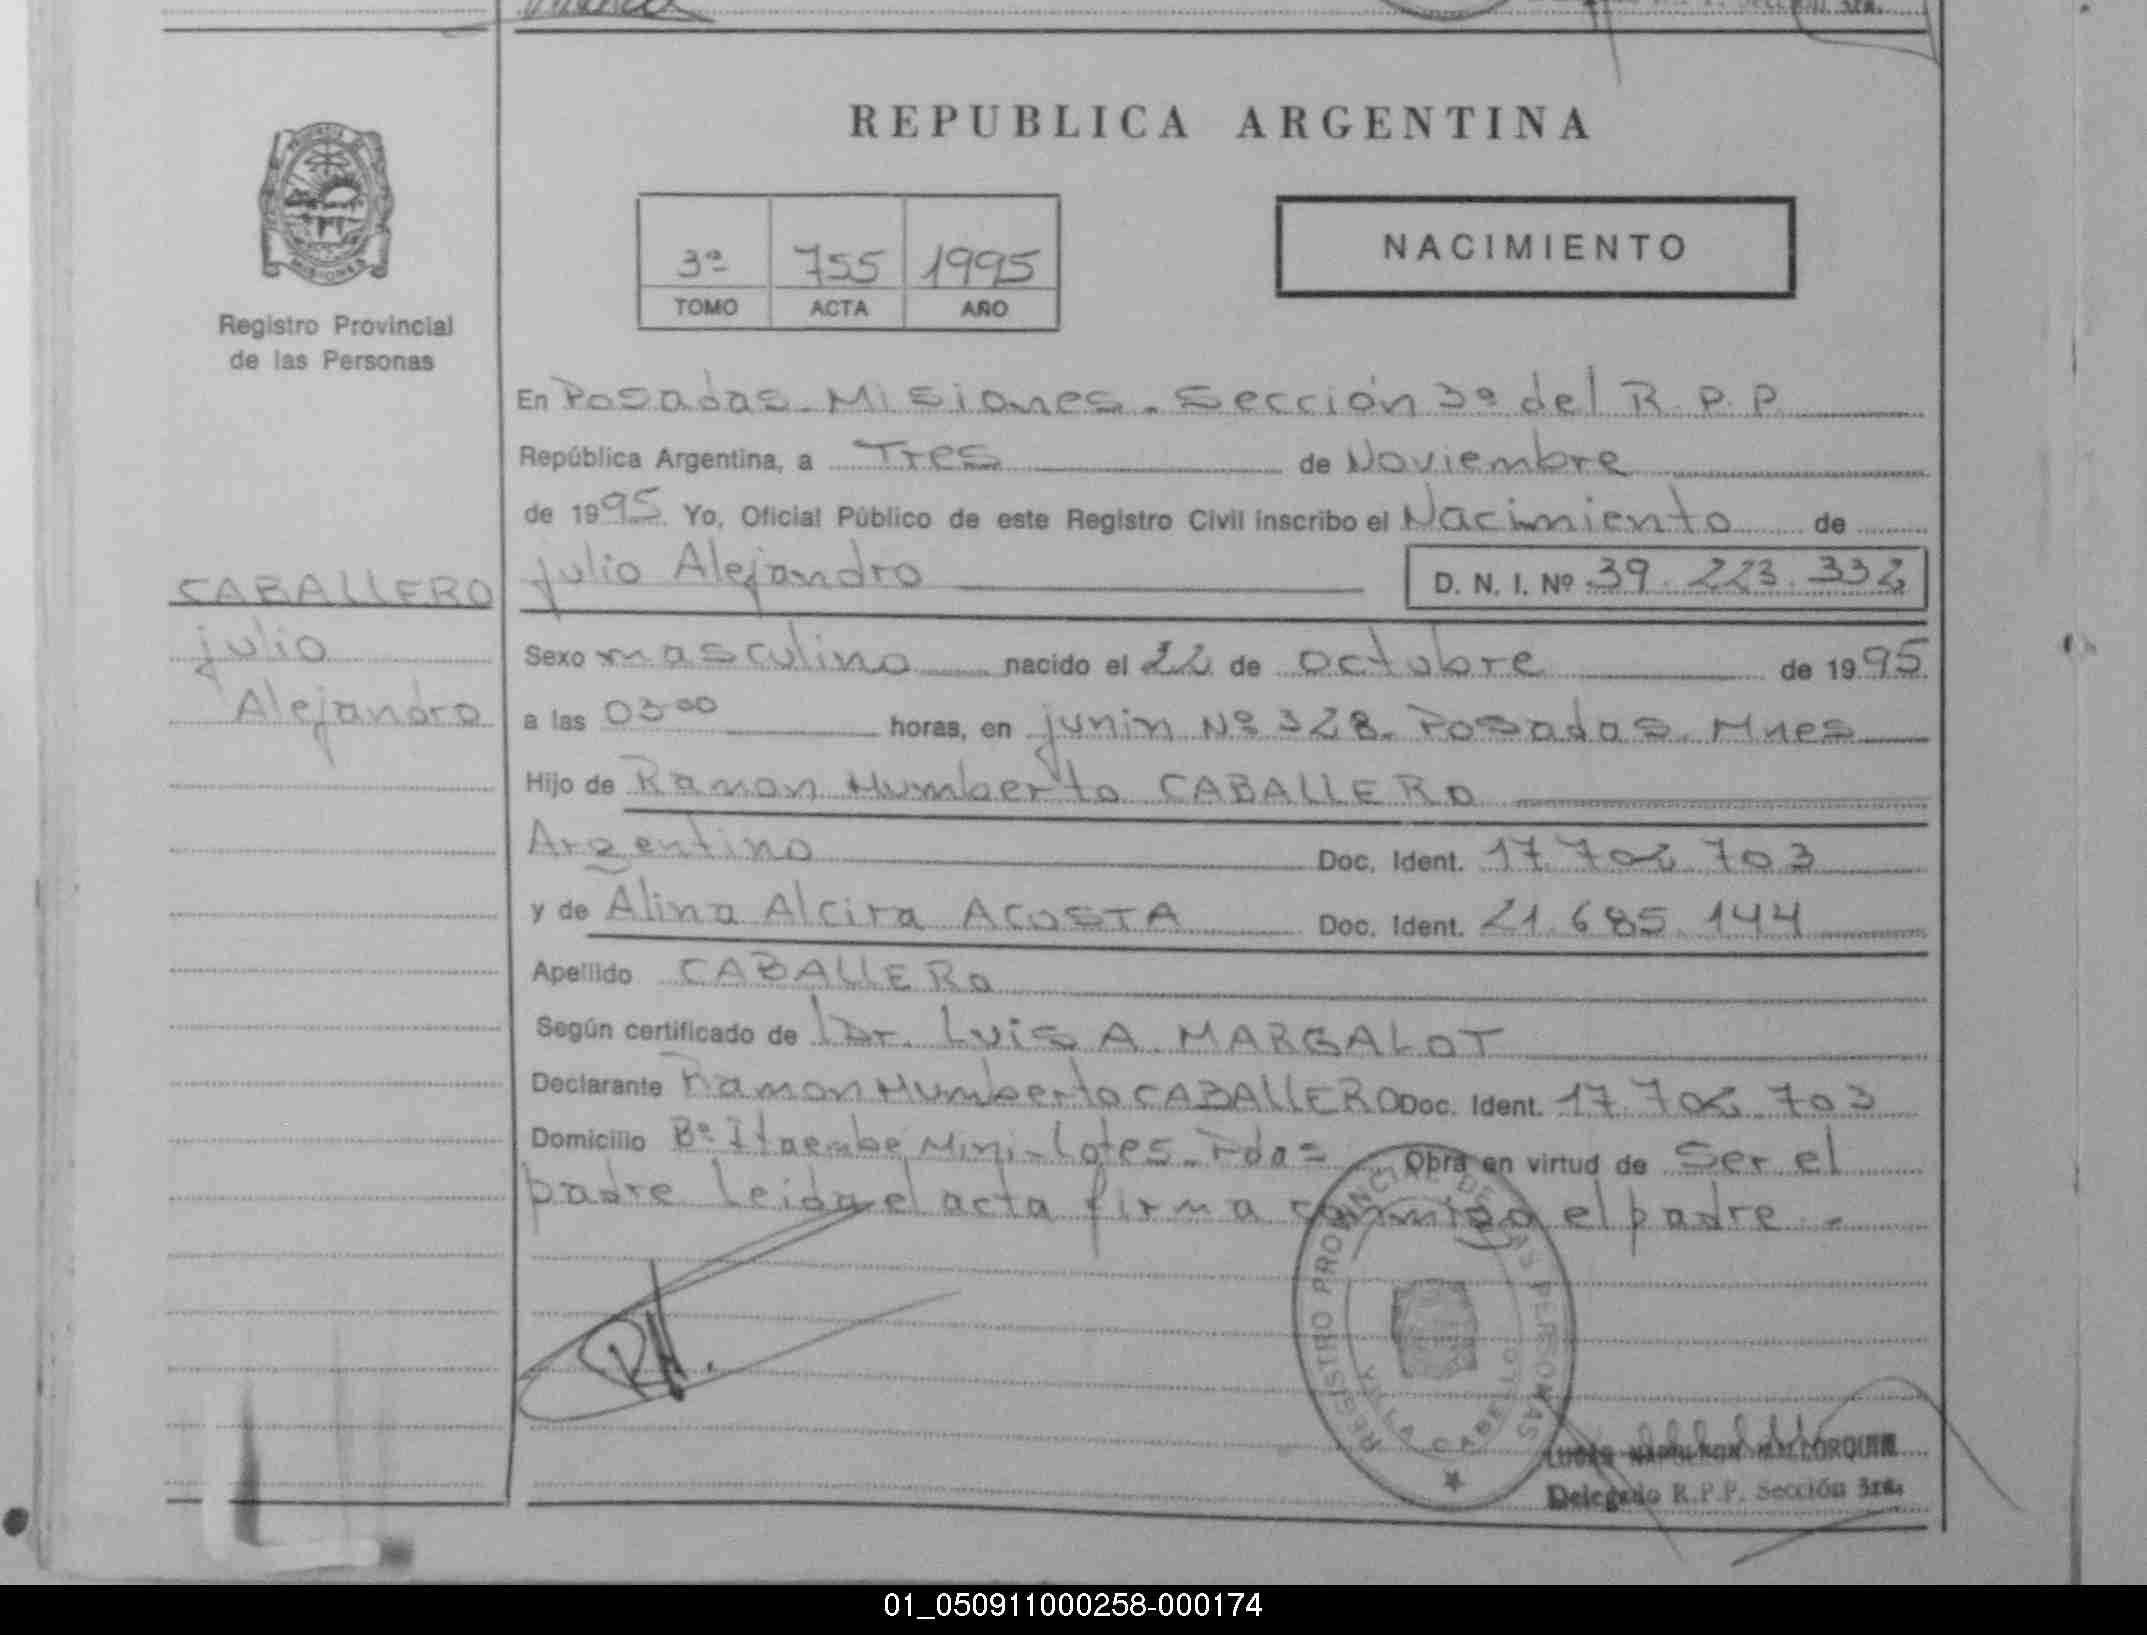 REPUBLICA ARGENTINA
MISIONES
Registro Provincial
de las Personas
3º 755 1995
TOMO ACTA AÑO
NACIMIENTO
En Posadas - Misiones - Sección 3º del R.P.P
República Argentina, a Tres de Noviembre
de 1995 Yo, Oficial Público de este Registro Civil inscribo el Nacimiento de
julio Alejandro D. N. I. Nº 39.223.332
CABALLERO
julio
Alejandro
Sexo masculino nacido el 22 de octubre de 1995
a las 03 00 horas, en junin Nº 328. Posadas. Mnes
Hijo de Ramon Humberto CABALLERO
Argentino Doc. Ident. 17.706.703
y de Alina Alcira ACOSTA Doc. Ident. 21.685.144
Apellido CABALLERO
Según certificado de Dr. Luis A. MARGALOT
Declarante Ramon Humberto CABALLERO Doc. Ident. 17.706.703
Domicilio Bº Itaembé Mini - Lotes - Pdas Obra en virtud de Ser el
padre Leida el acta firma conmigo el padre.-
REGISTRO PROVINCIAL DE LAS PERSONAS
VILLA CABELLO
MALLORQUIN
Delegado R.P.P. Sección 3ra.
01_050911000258-000174